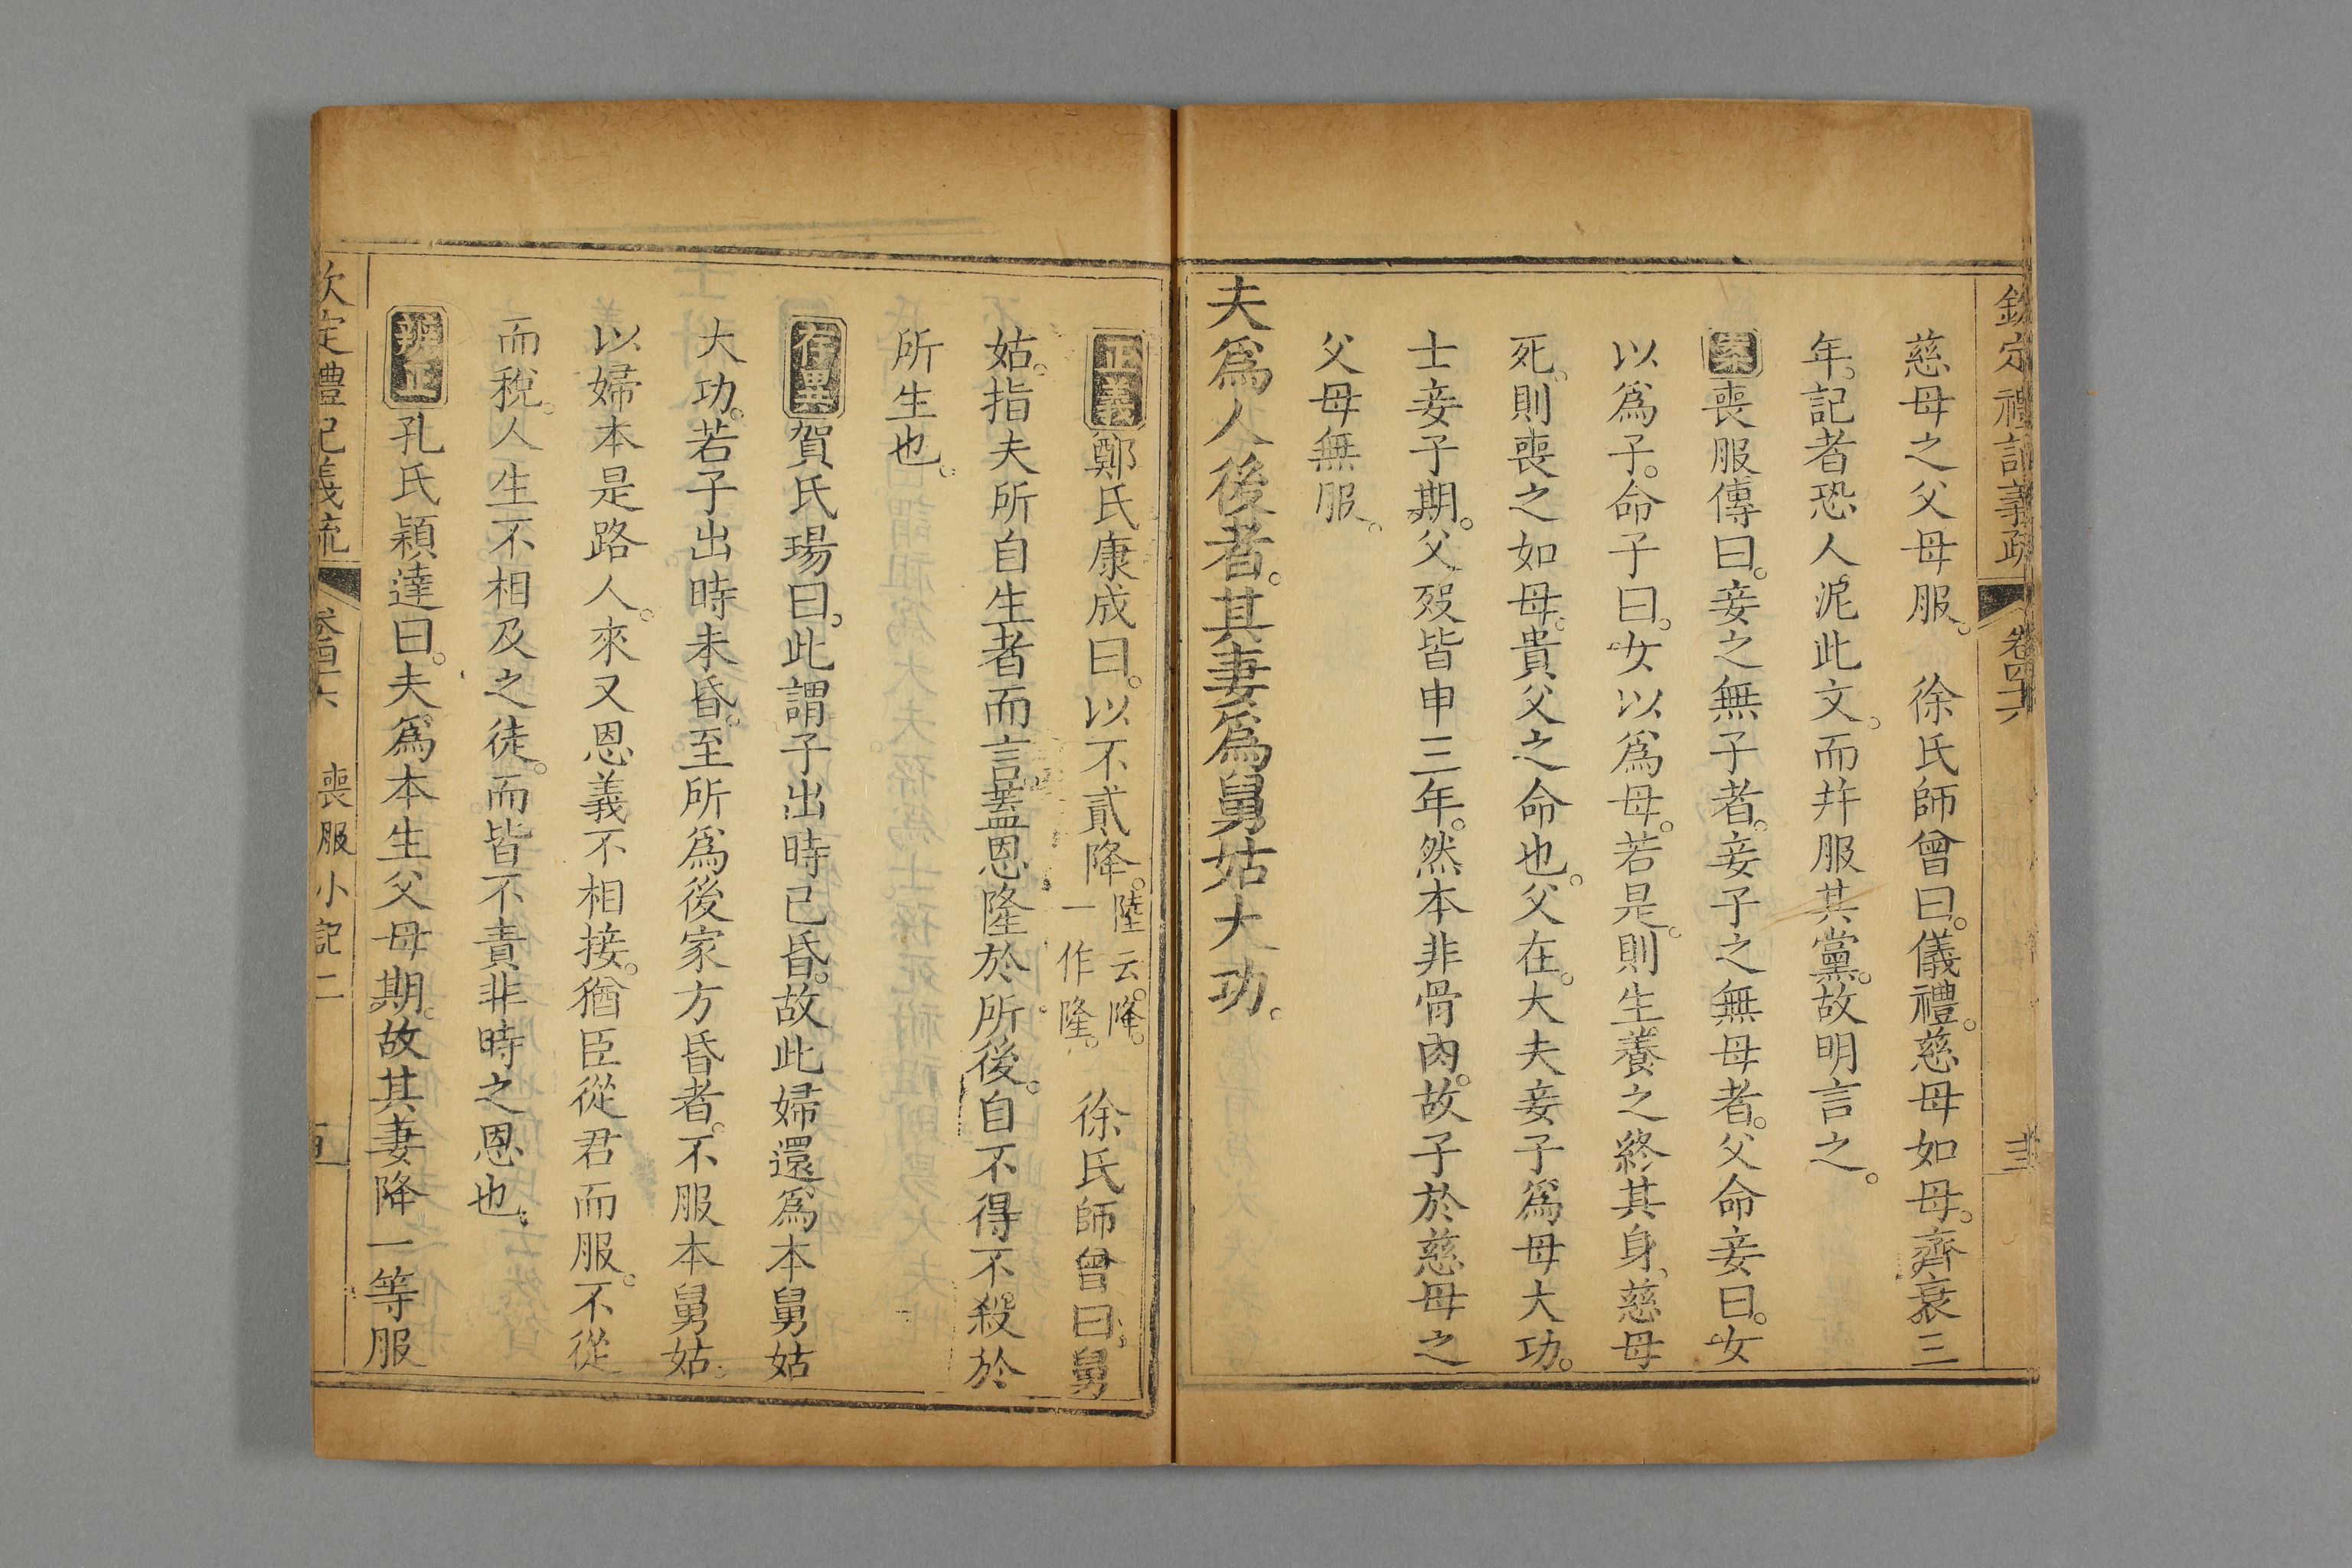 欽定禮記義疏 卷四十六
慈母之父母服。 徐氏師曾曰。儀禮。慈母如母。齊衰三
年。記者恐人泥此文。而并服其黨。故明言之。
案 喪服傳曰。妾之無子者。妾子之無母者。父命妾曰。女
以爲子。命子曰。女以爲母。若是。則生養之終其身。慈母
死。則喪之如母。貴父之命也。父在。大夫妾子爲母大功。
士妾子期。父歿皆申三年。然本非骨肉。故子於慈母之
父母無服。
夫爲人後者。其妻爲舅姑大功。
正義 鄭氏康成曰。以不貳降。陸云。降。一作隆。 徐氏師曾曰。舅
姑。指夫所自生者而言。蓋恩隆於所後。自不得不殺於
所生也。
存異 賀氏瑒曰。此謂子出時已昏。故此婦還爲本舅姑
大功。若子出時未昏。至所爲後家方昏者。不服本舅姑。
以婦本是路人。來又恩義不相接。猶臣從君而服。不從
而稅。人生不相及之徒。而皆不責非時之恩也。
辨正 孔氏穎達曰。夫爲本生父母期。故其妻降一等服
欽定禮記義疏 卷四十六 喪服小記二